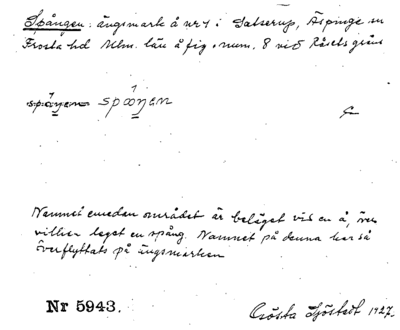 Spången: ängsmark å nr 1 i Satserup, Äspinge sn
Frosta hd Mlm. län å fig. num. 8 vid Rösets gräns
spåŋen spåŋen
Namnet emedan området är beläget vid en å, över
vilken legat en spång. Namnet på denna har så
överflyttats på ängsmarken
Nr 5943.
Gösta Sjöstedt 1927.